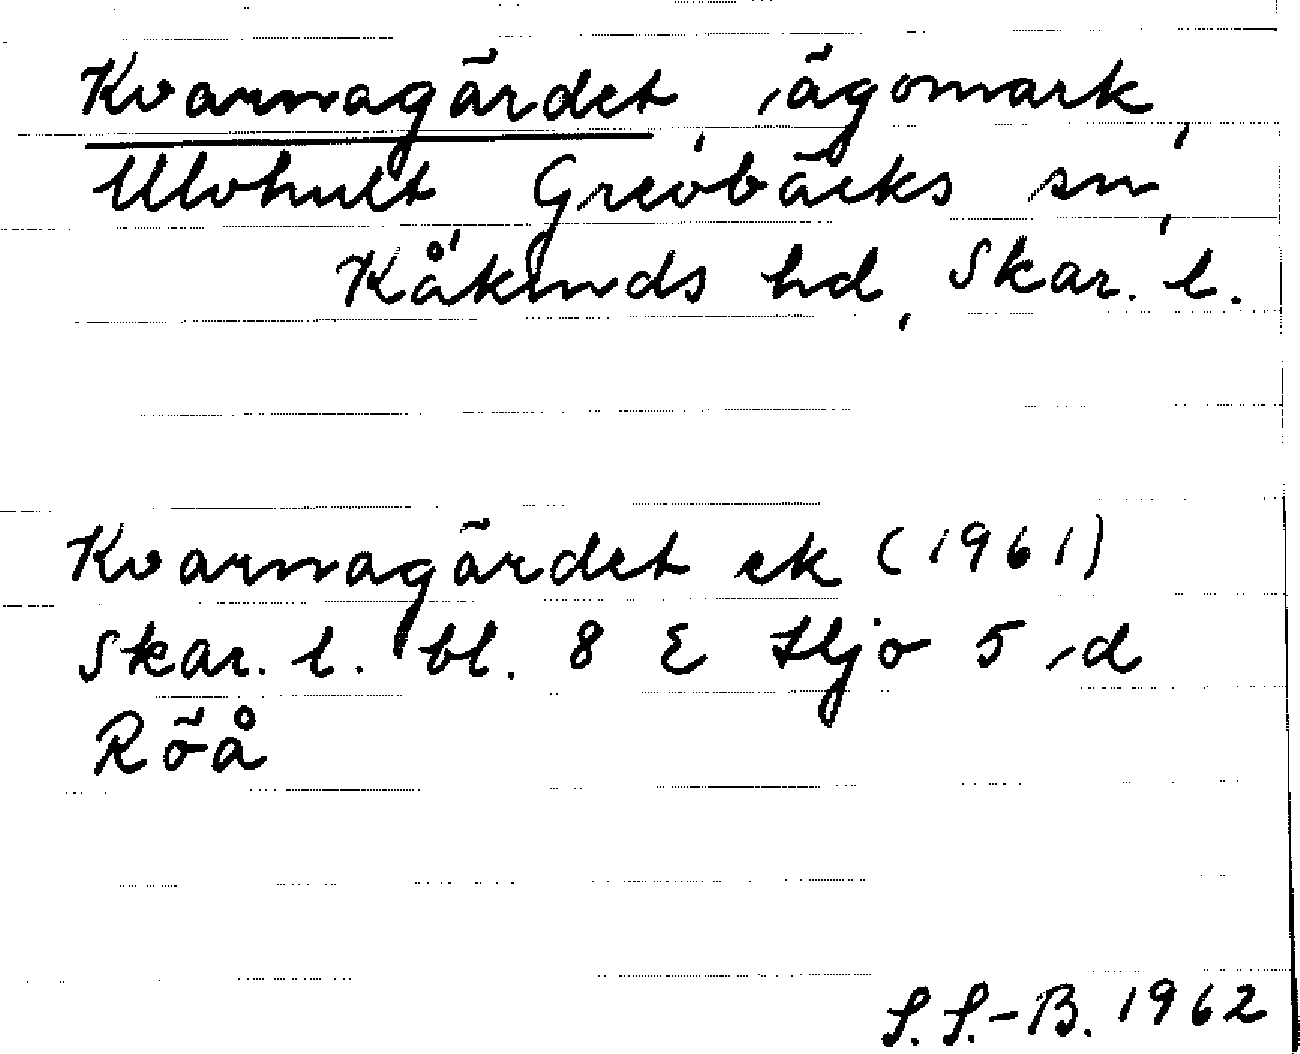 Kvarnagärdet, ägomark,
Ulvhult, Grevbäcks sn,
Kåkinds hd, Skar. l.
Kvarnagärdet ek (1961)
Skar. l. bl. 8 E Hjo 5 d
Röå
S. S.-B. 1962